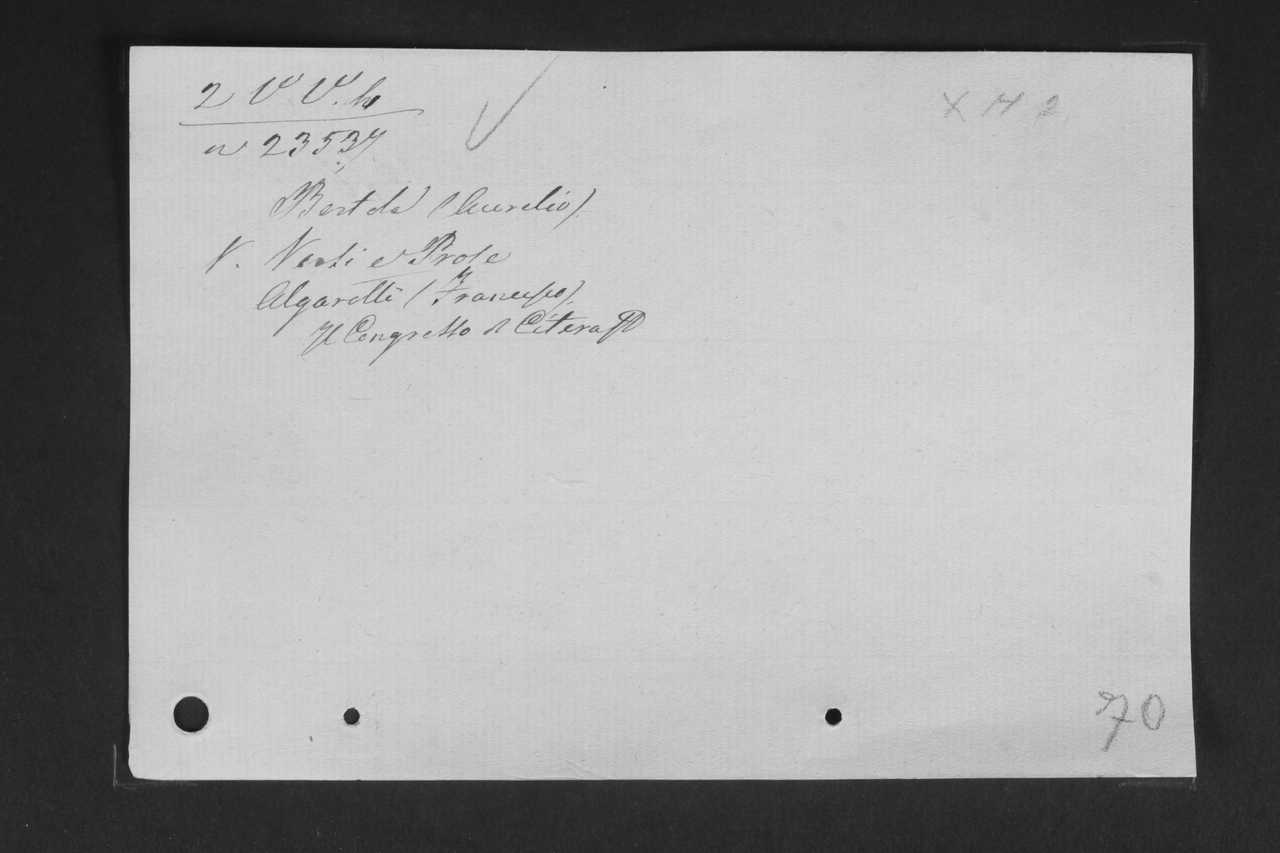 2 V V. h
X H 2
n 23537
Bertola (Aurelio).
V. Versi e Prose
Algarotti (Francesco).
Il Congresso di Citera
70